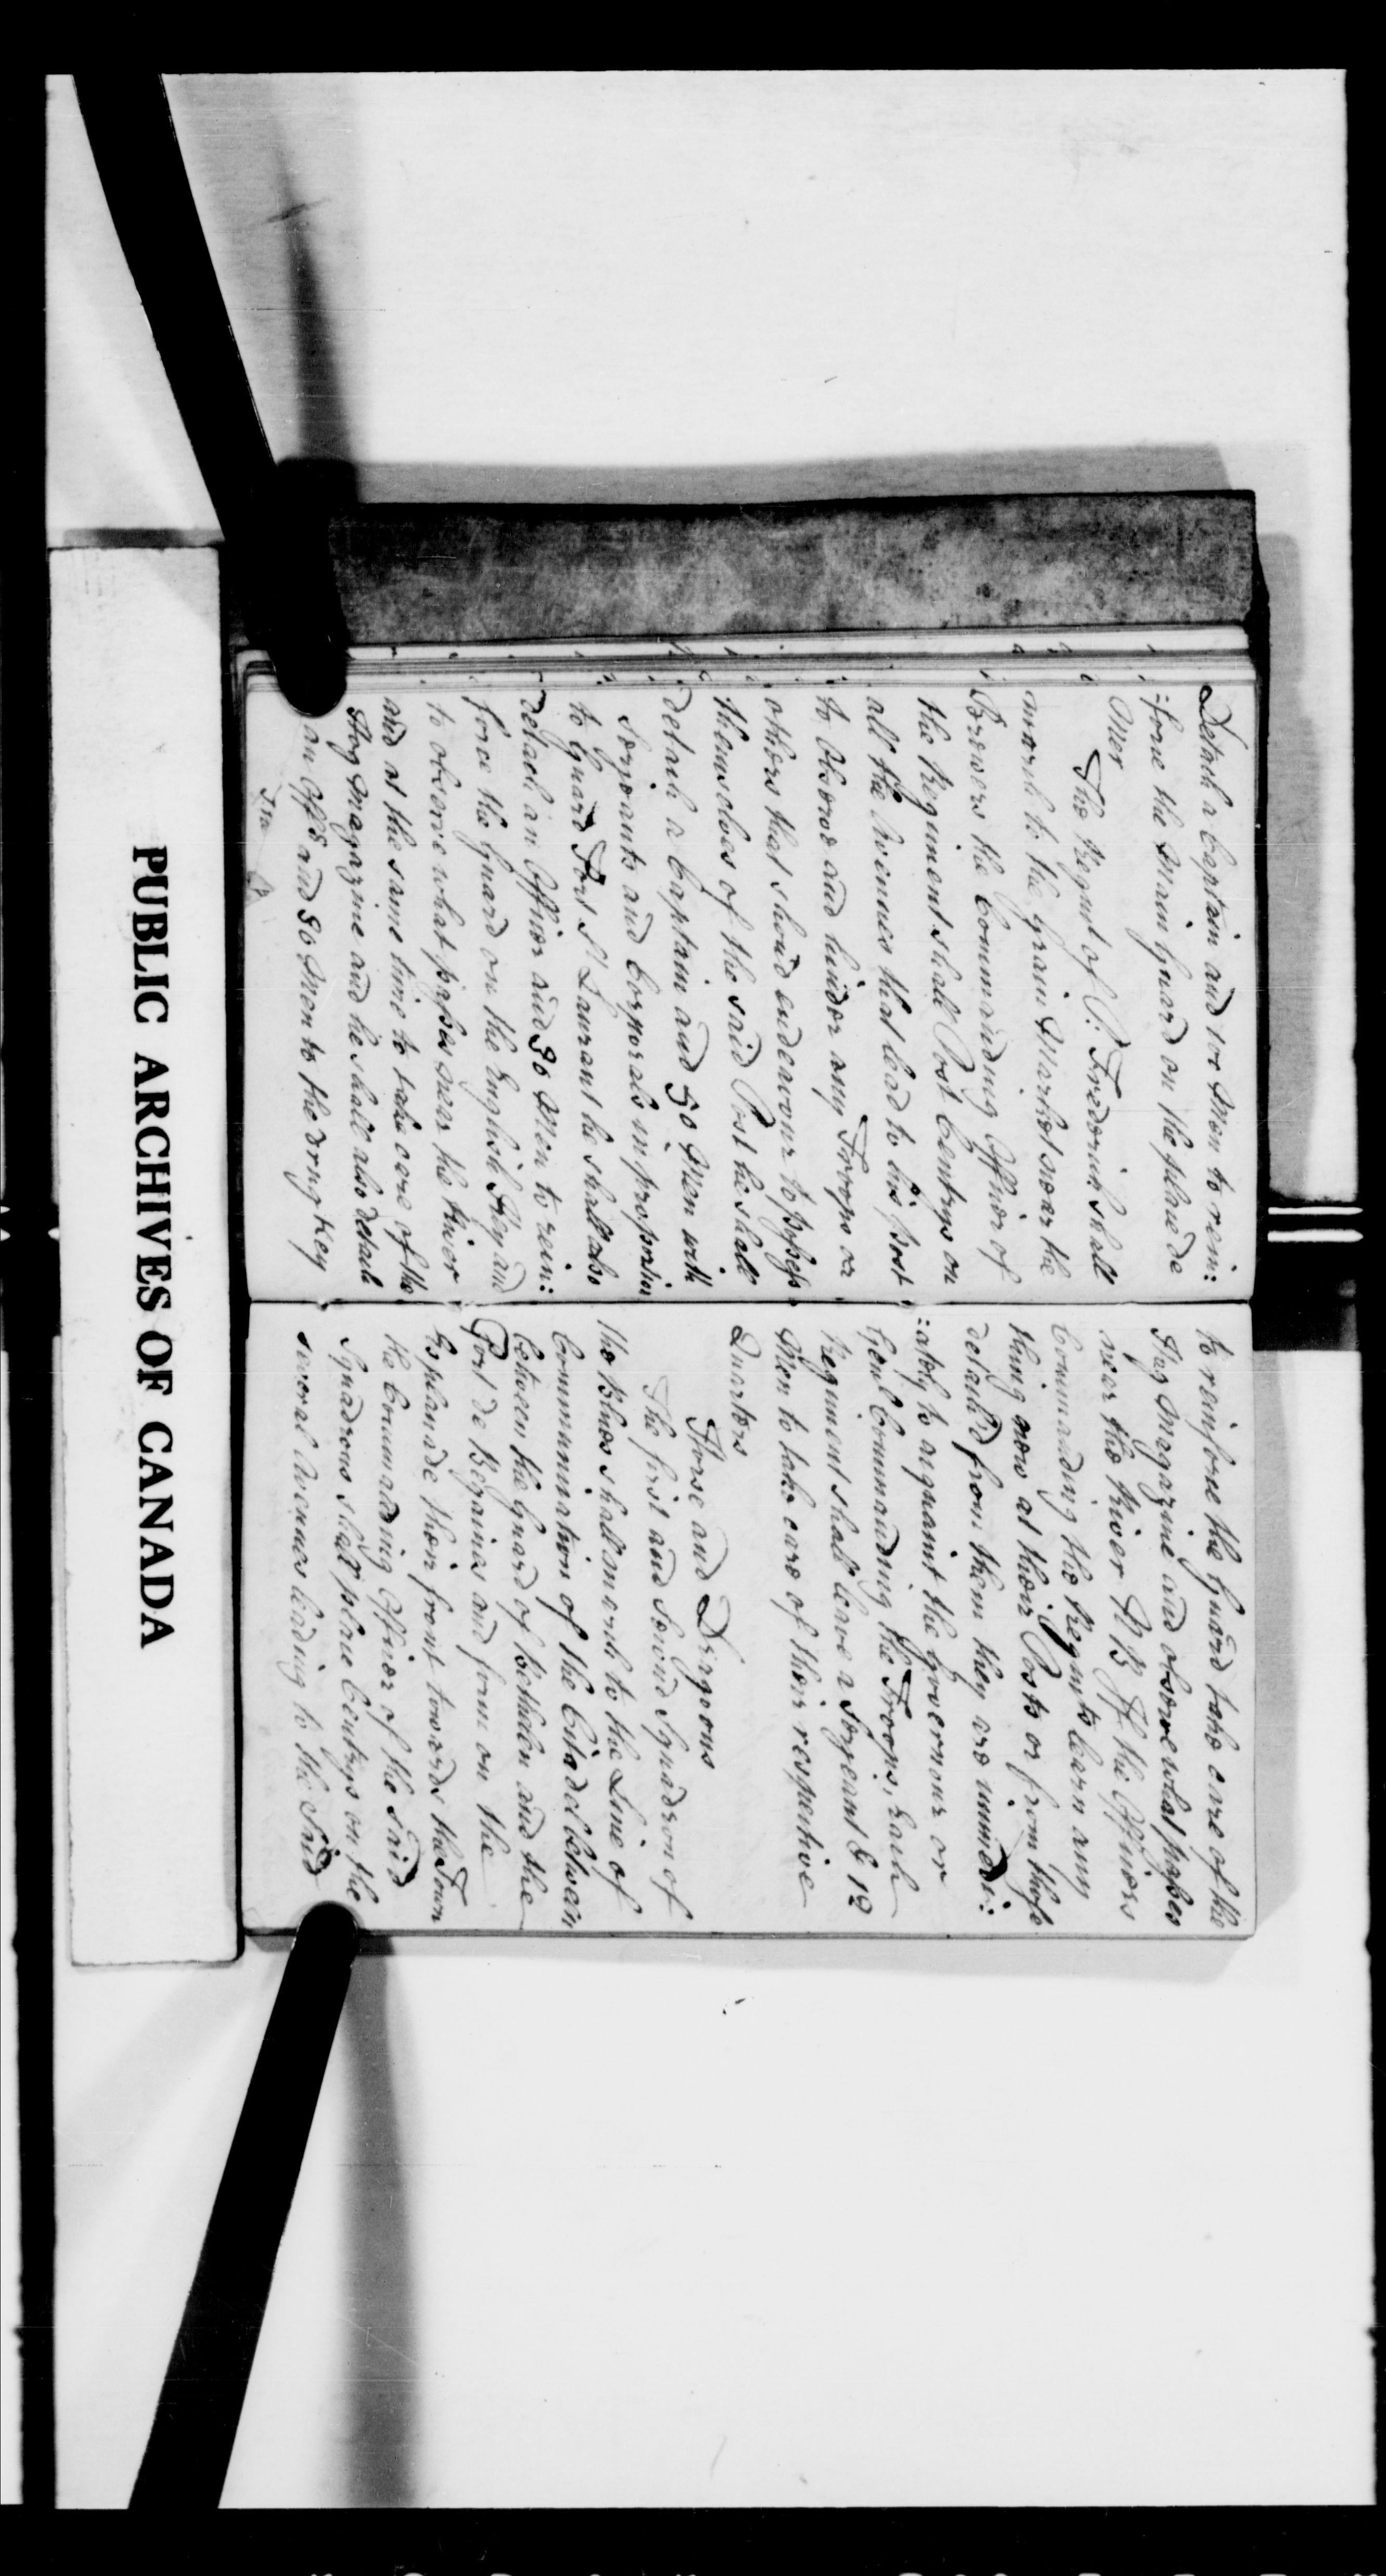 Detach a Captain and 100 Men to rein:
:force the Main Guard on the place de
Mer
The Regmt of P: Frederick shall
march to the Grain Market near the
Brewers the Commanding Officer of
the Regiment shall Post Centrys on
all the Avenues that lead to his post
to Observe and hinder any Troops or
others that shoud endeavour to possess
themselves of the said Post he shall
detach a Captain and 50 Men with
Serjeants and Corporals in proportion
to Guard Port St Laurant he shall also
detach an Officer and 30 Men to rein:
force the Guard on the English Key and
to observe what passes near the River
and at the same time to take care of the
Hay Magazine and he shall also detach
an Offr and 30 Men to the Key
to reinforce the Guard take care of the
Hay Magazine and observe what passes
near the River NB If the Officers
Commanding the Regmts learn any
thing new at their Posts or from those
detach'd from them they are immedi:
:ately to acquaint the Governour or
Genl Commanding the Troops, Each
Regiment shall leave a Serjeant & 12
Men to take care of their respective
Quarters
Horse and Dragoons
The first and Second Squadron of
the Blues shall march to the Line of
Communication of the Citadel between
between the Guard of Bethelen and the
Port de Begaines and form on the
Esplanade their front towards the Town
the Commanding Officer of the said
Squadrons shall place Centrys on the
several Avenues leading to the Said
PUBLIC ARCHIVES OF CANADA